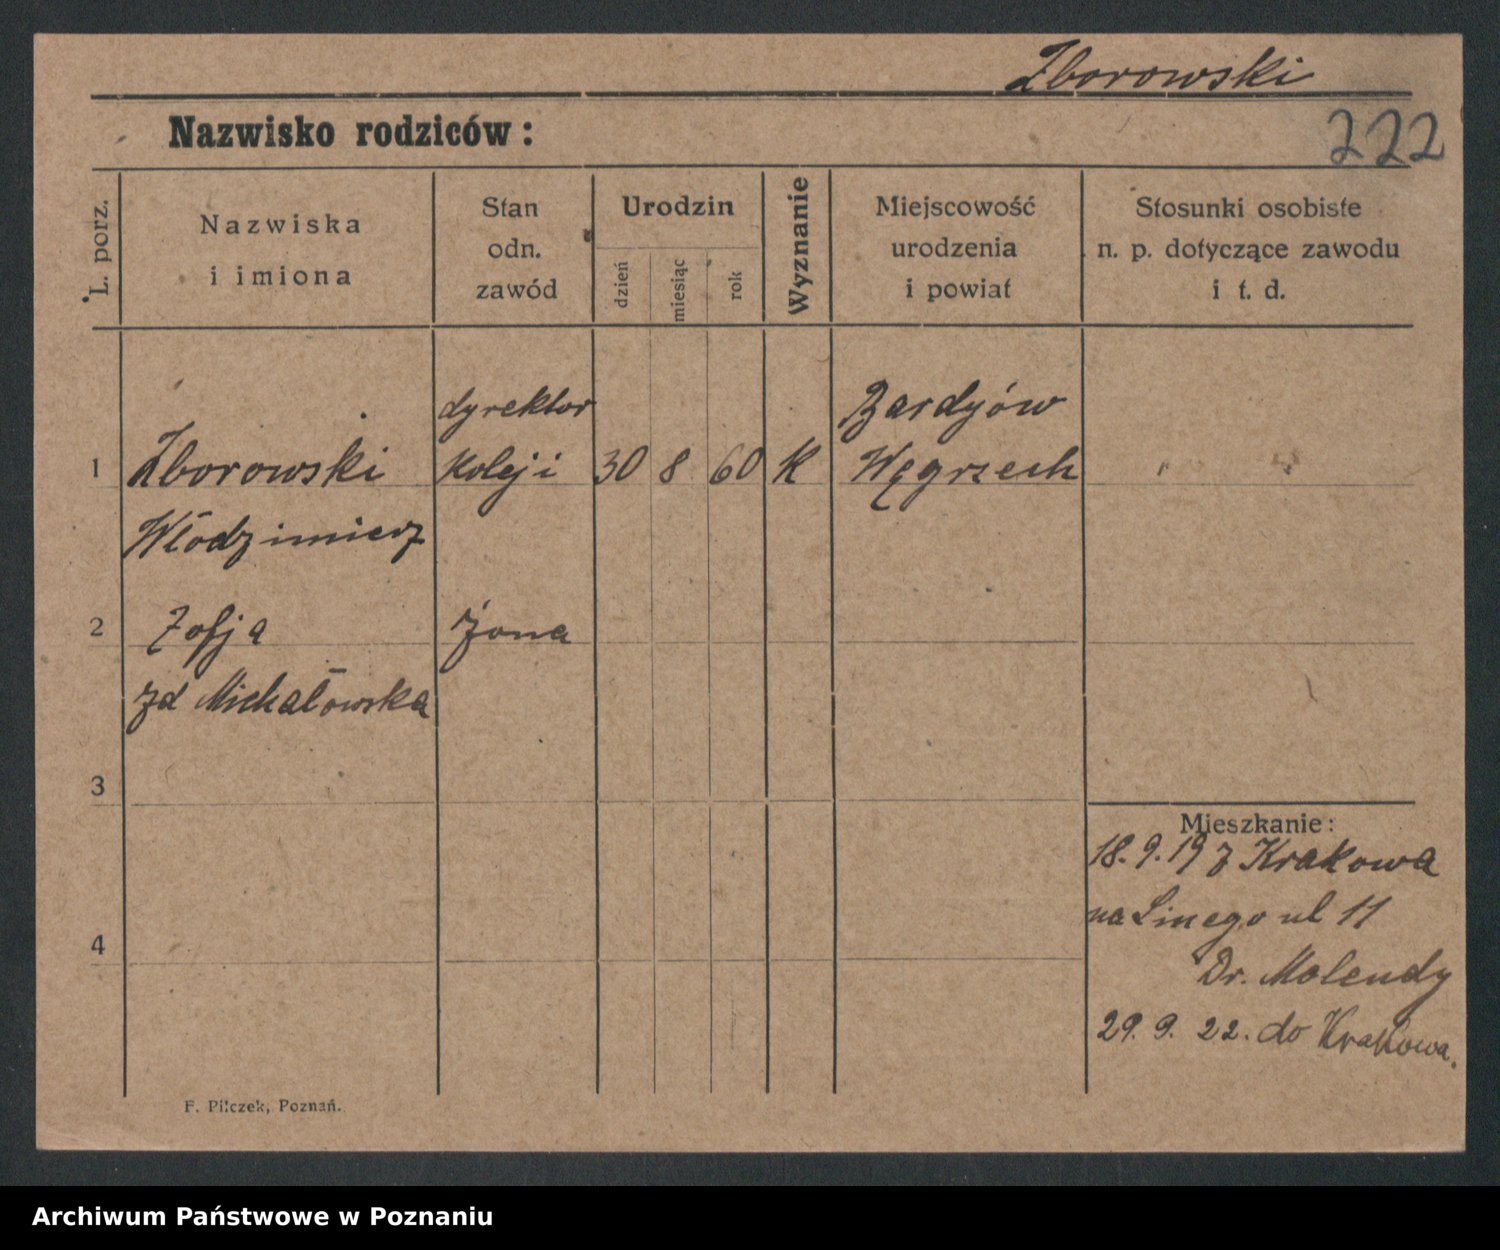 Zborowski
Nazwisko rodziców:
222
L. porz.
Nazwiska
i imiona
Stan
odn.
zawód
Urodzin
dzień
miesiąc
rok
Wyznanie
Miejscowość
urodzenia
i powiat
Stosunki osobiste
n. p. dotyczące zawodu
i t. d.
1
Zborowski
Włodzimierz
dyrektor
Koleji
30
8
60
K
Bardyów
Węgrzech
2
Zofja
zd Michałowska
żona
3
4
Mieszkanie:
18. 9. 19 z Krakowa
na ul 11
Dr. Molendy
29. 9. 22. do Krakowa.
F. Pilczek, Poznań.
Archiwum Państwowe w Poznaniu